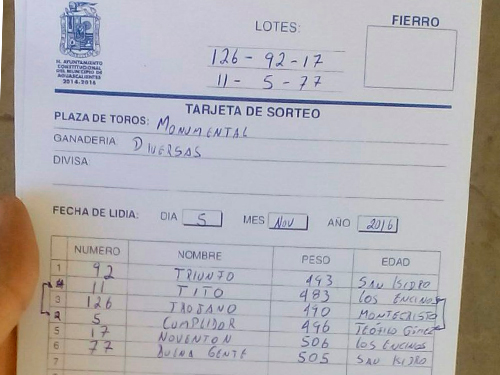 LOTES:
FIERRO
126-92-17
11-5-77
H. AYUNTAMIENTO
CONSTITUCIONAL
DEL MUNICIPIO DE
AGUASCALIENTES
2014-2016
TARJETA DE SORTEO
PLAZA DE TOROS: MONUMENTAL
GANADERIA: DIVERSAS
DIVISA
FECHA DE LIDIA: DIA 5 MES NOV AÑO 2016
NUMERO NOMBRE PESO EDAD
1 92 TRIUNFO 493 SAN ISIDRO
4 11 TITO 483 LOS ENCINOS
3 126 TROJANO 490 MONTECRISTO
2 5 CUMPLIDOR 496 TEOFILO GOMEZ
5 17 NOVENTON 506 LOS ENCINOS
6 77 BUENA GENTE 505 SAN ISIDRO
7